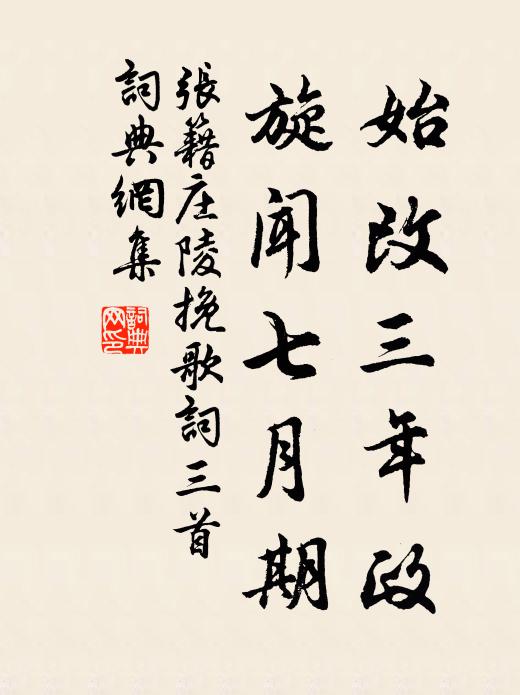 始改三年政
旋聞七月期
張籍庄陵挽歌詞三首
詞典網集
詞典
网印